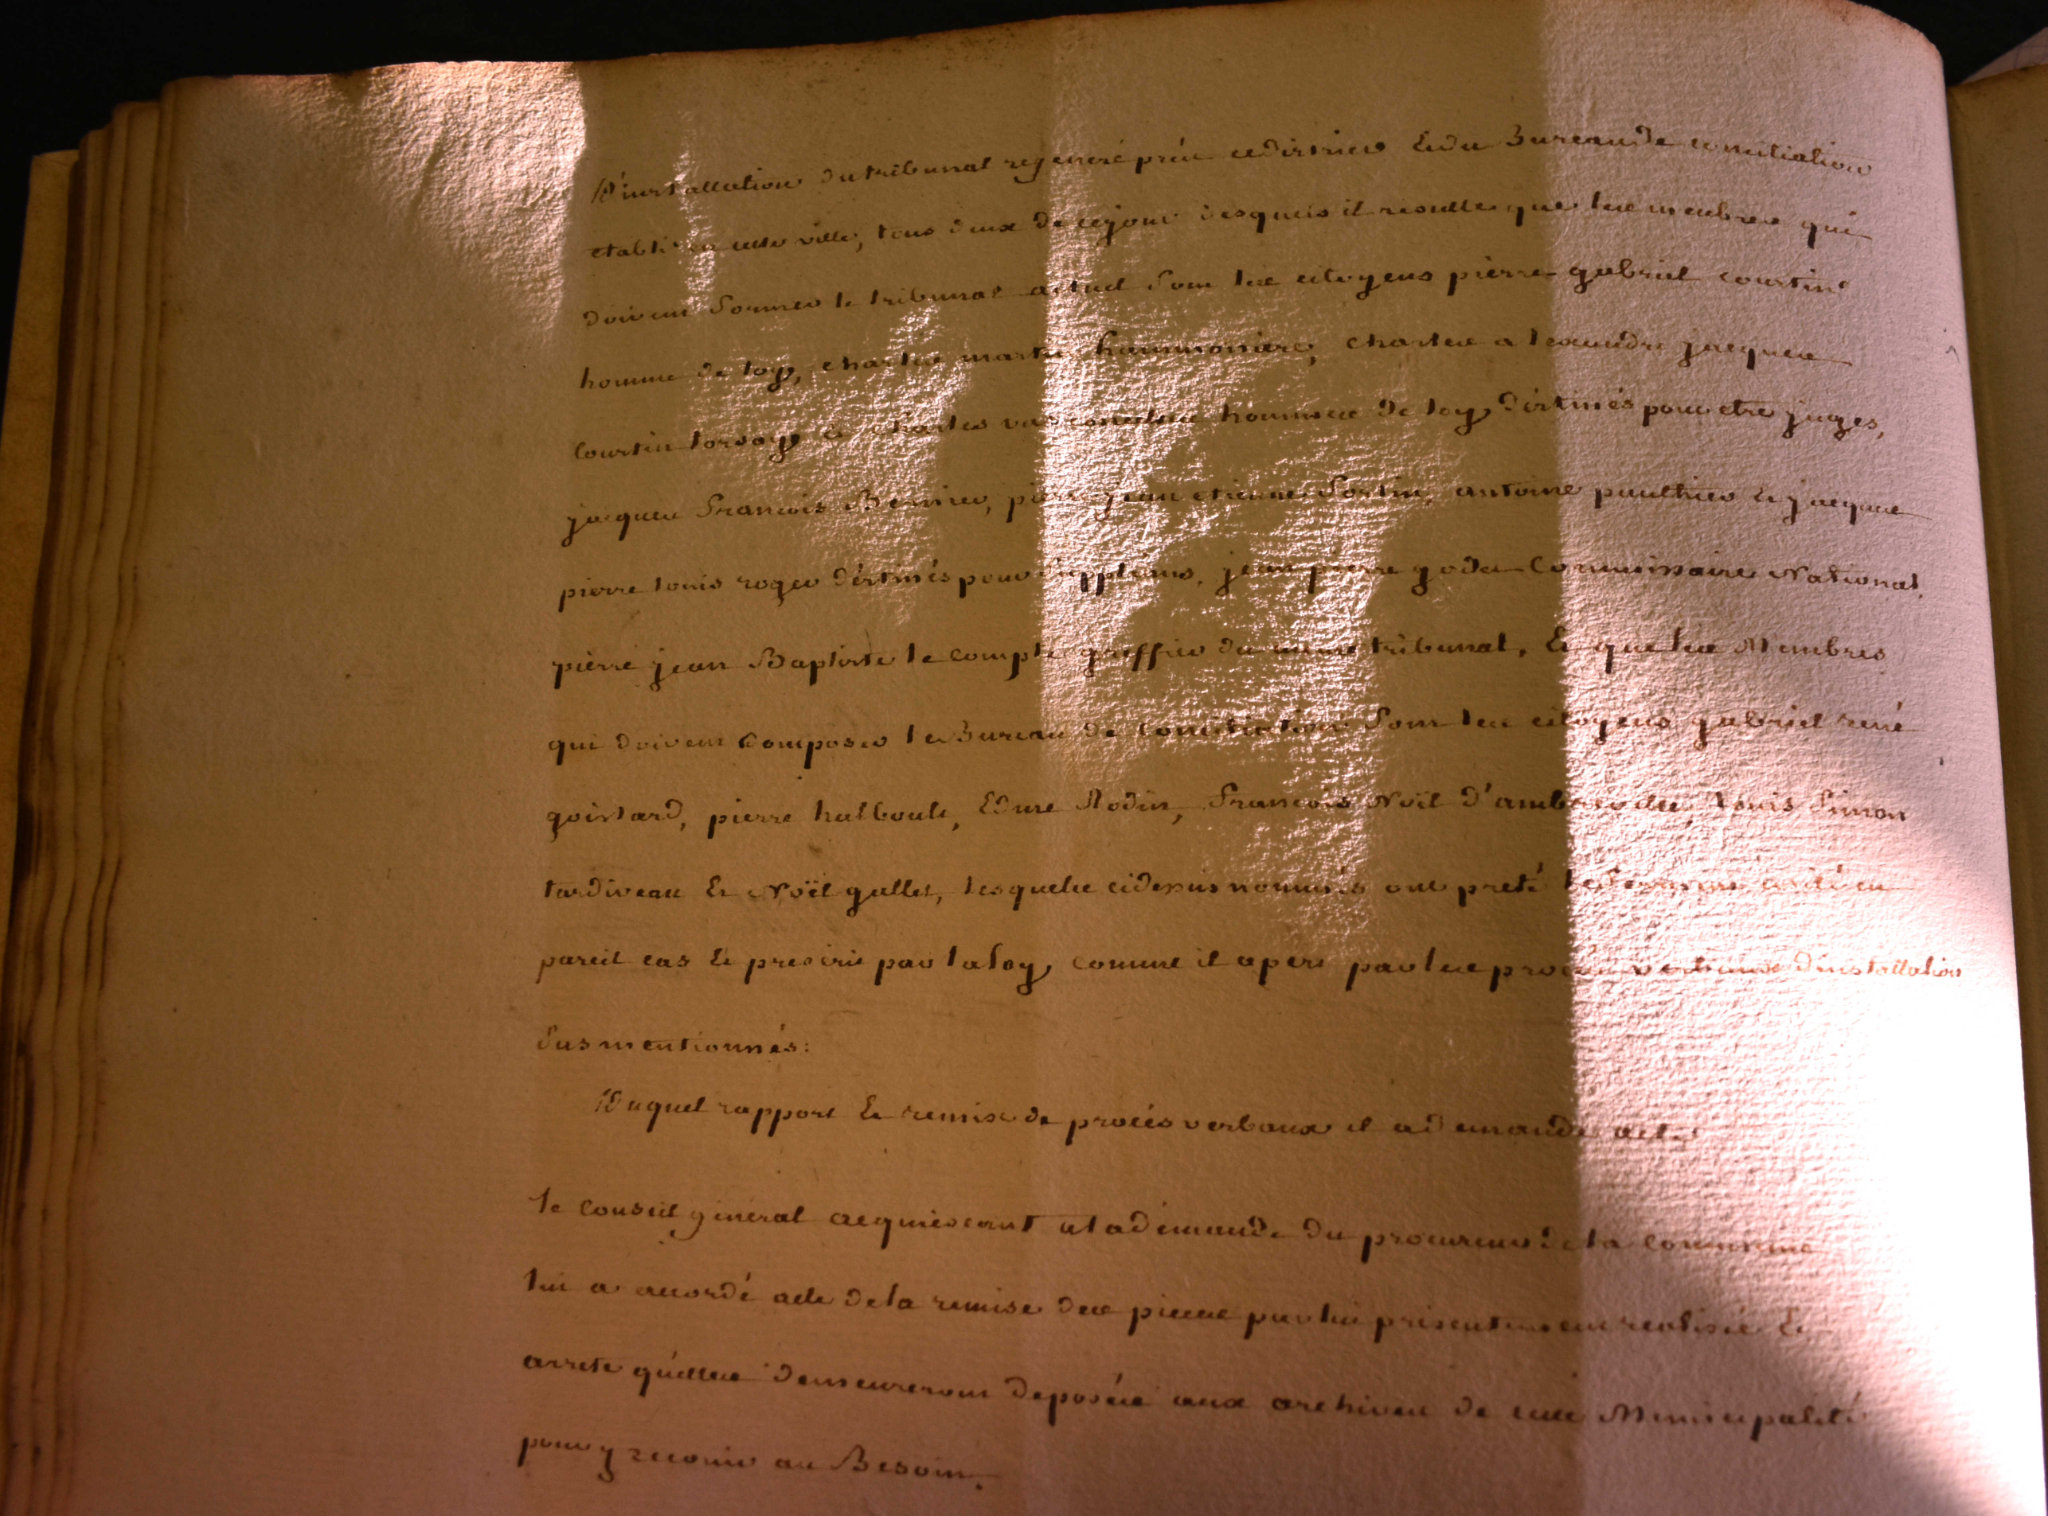 D'installation du tribunal regeneré prés ce district Et du Bureau de conciliation
etabli en cette ville, tous deux de ce jour desquels il resulte que les membres qui
doivent former le tribunal actuel sont les citoyens pierre gabriel courtin
homme de loy, charles martin hammonière, charles alexandre jacques
courtin torsay et charles homme de loy destinés pour etre juges,
jacques françois Bernier, pierre jean etienne fortin, antoine paulhier Et jacques
pierre louis roger déstinés pour supleans, jean pierre godet Commissaire National,
pierre jean Baptiste le compte greffier du meme tribunal, Et que les Membres
qui doivent composer le Bureau de conciliation sont les citoyens gabriel rené
goislard, pierre halboute, Edme Rodin, françois Noël louis simon
tardiveau Et Noël gallet, lesquels cidessus nommés ont preté le serment en
pareil cas Et prescrit par la loy, comme il apert par les procès verbaux d'installation
sus mentionnés:
Duquel rapport Et remise de procés verbaux il a demandé acte
le conseil général acquiescant a la demande du procureur de la commune
lui a accordé acte de la remise des pieces par lui présentement realisée Et
arrete qu'elles demeureront deposées aux archives de cette Municipalité
pour y recourir au Besoin.